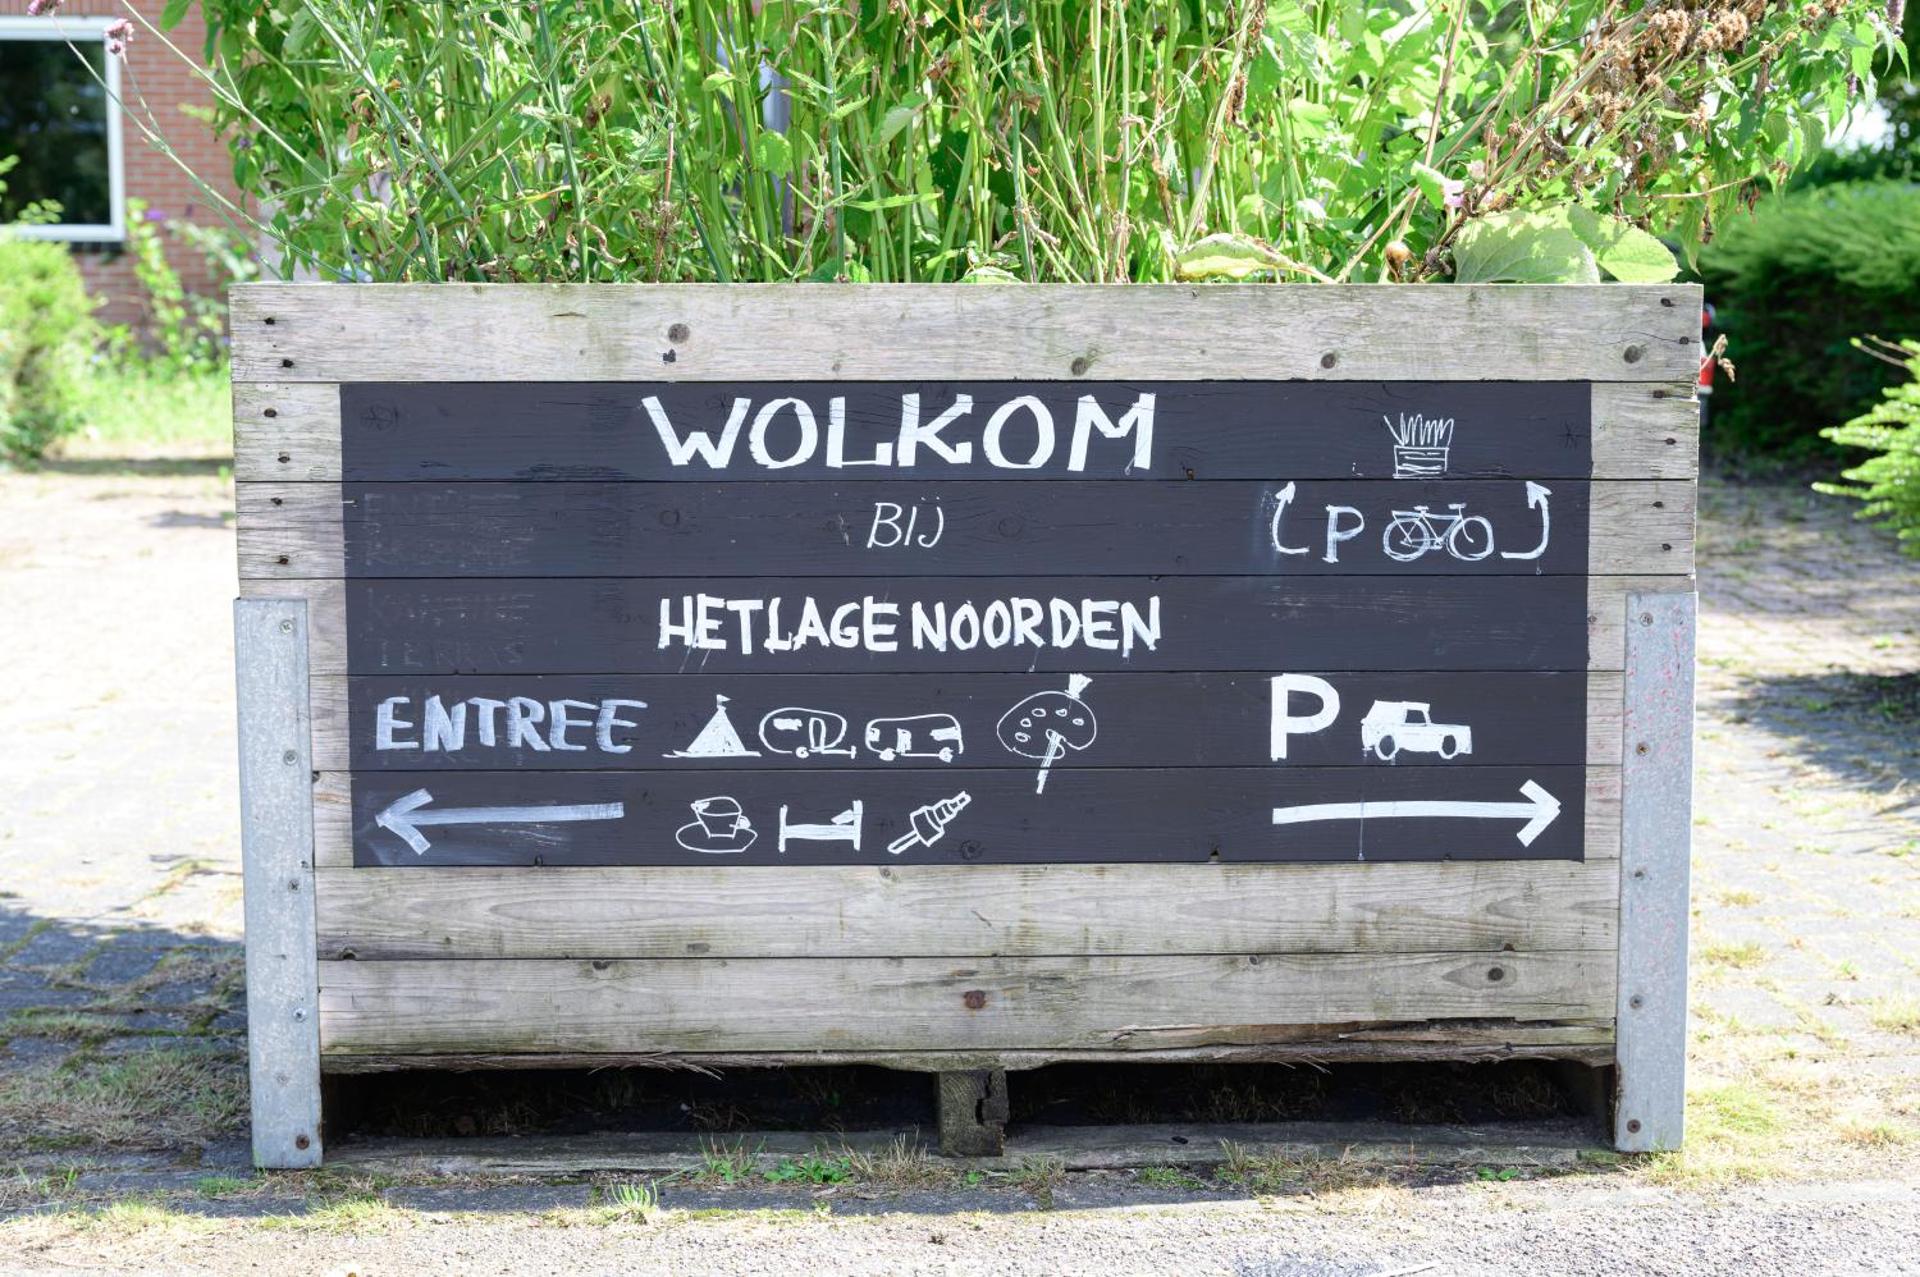 WOLKOM
BIJ
P
HET LAGE NOORDEN
ENTREE
P